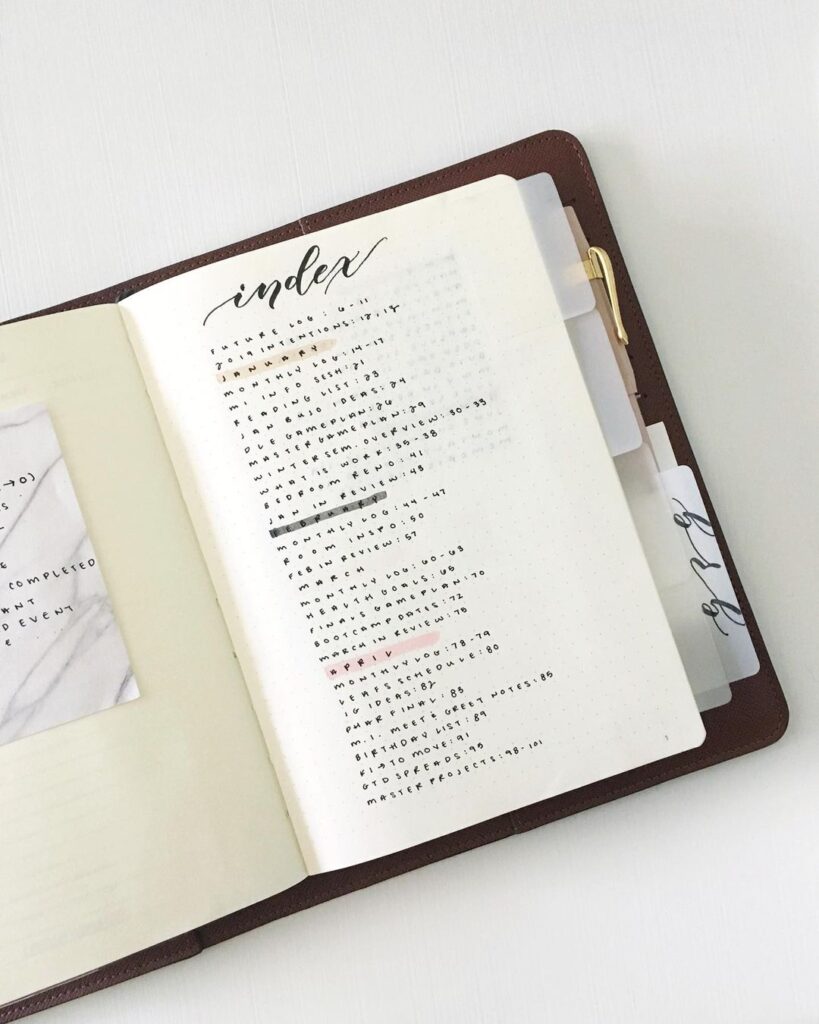 → 0)
COMPLETED
ANT
D EVENT
index
FUTURE LOG: 6-11
2019 INTENTIONS: 12, 13
JANUARY
MONTHLY LOG: 14-17
M.I. INFO SESH: 21
READING LIST: 23
JAN BUJO IDEAS: 24
DLE GAMEPLAN: 26
MASTER GAMEPLAN: 29
WINTER SEM. OVERVIEW: 30-33
WHAT'S WORK: 35-38
BEDROOM RENO: 41
JAN IN REVIEW: 43
FEBRUARY
MONTHLY LOG: 44-47
ROOM INSPO: 50
FEB IN REVIEW: 57
MARCH
MONTHLY LOG: 60-63
HEALTH GOALS: 65
FINALS GAMEPLAN: 70
BOOTCAMP DATES: 72
MARCH IN REVIEW: 75
APRIL
MONTHLY LOG: 78-79
LEAFS SCHEDULE: 80
IG IDEAS: 82
PHAR FINAL: 83
M.I. MEET & GREET NOTES: 85
BIRTHDAY LIST: 89
K1 → TO MOVE: 91
GTD SPREADS: 95
MASTER PROJECTS: 98-101
1